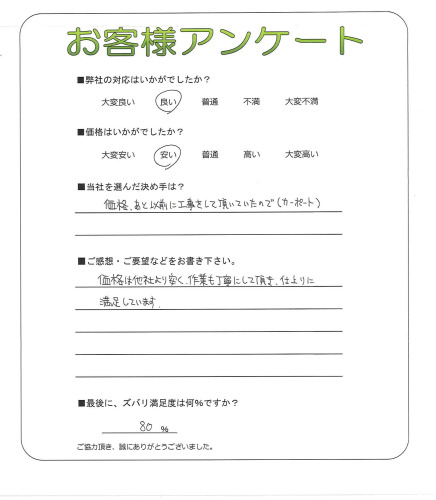 お客様アンケート
■弊社の対応はいかがでしたか？
大変良い　良い　普通　不満　大変不満
■価格はいかがでしたか？
大変安い　安い　普通　高い　大変高い
■当社を選んだ決め手は？
価格、あと以前に工事をして頂いていたので(カーポート)
■ご感想・ご要望などをお書き下さい。
価格は他社より安く、作業も丁寧にして頂き、仕上りに
満足しています.
■最後に、ズバリ満足度は何%ですか？
80 %
ご協力頂き、誠にありがとうございました。